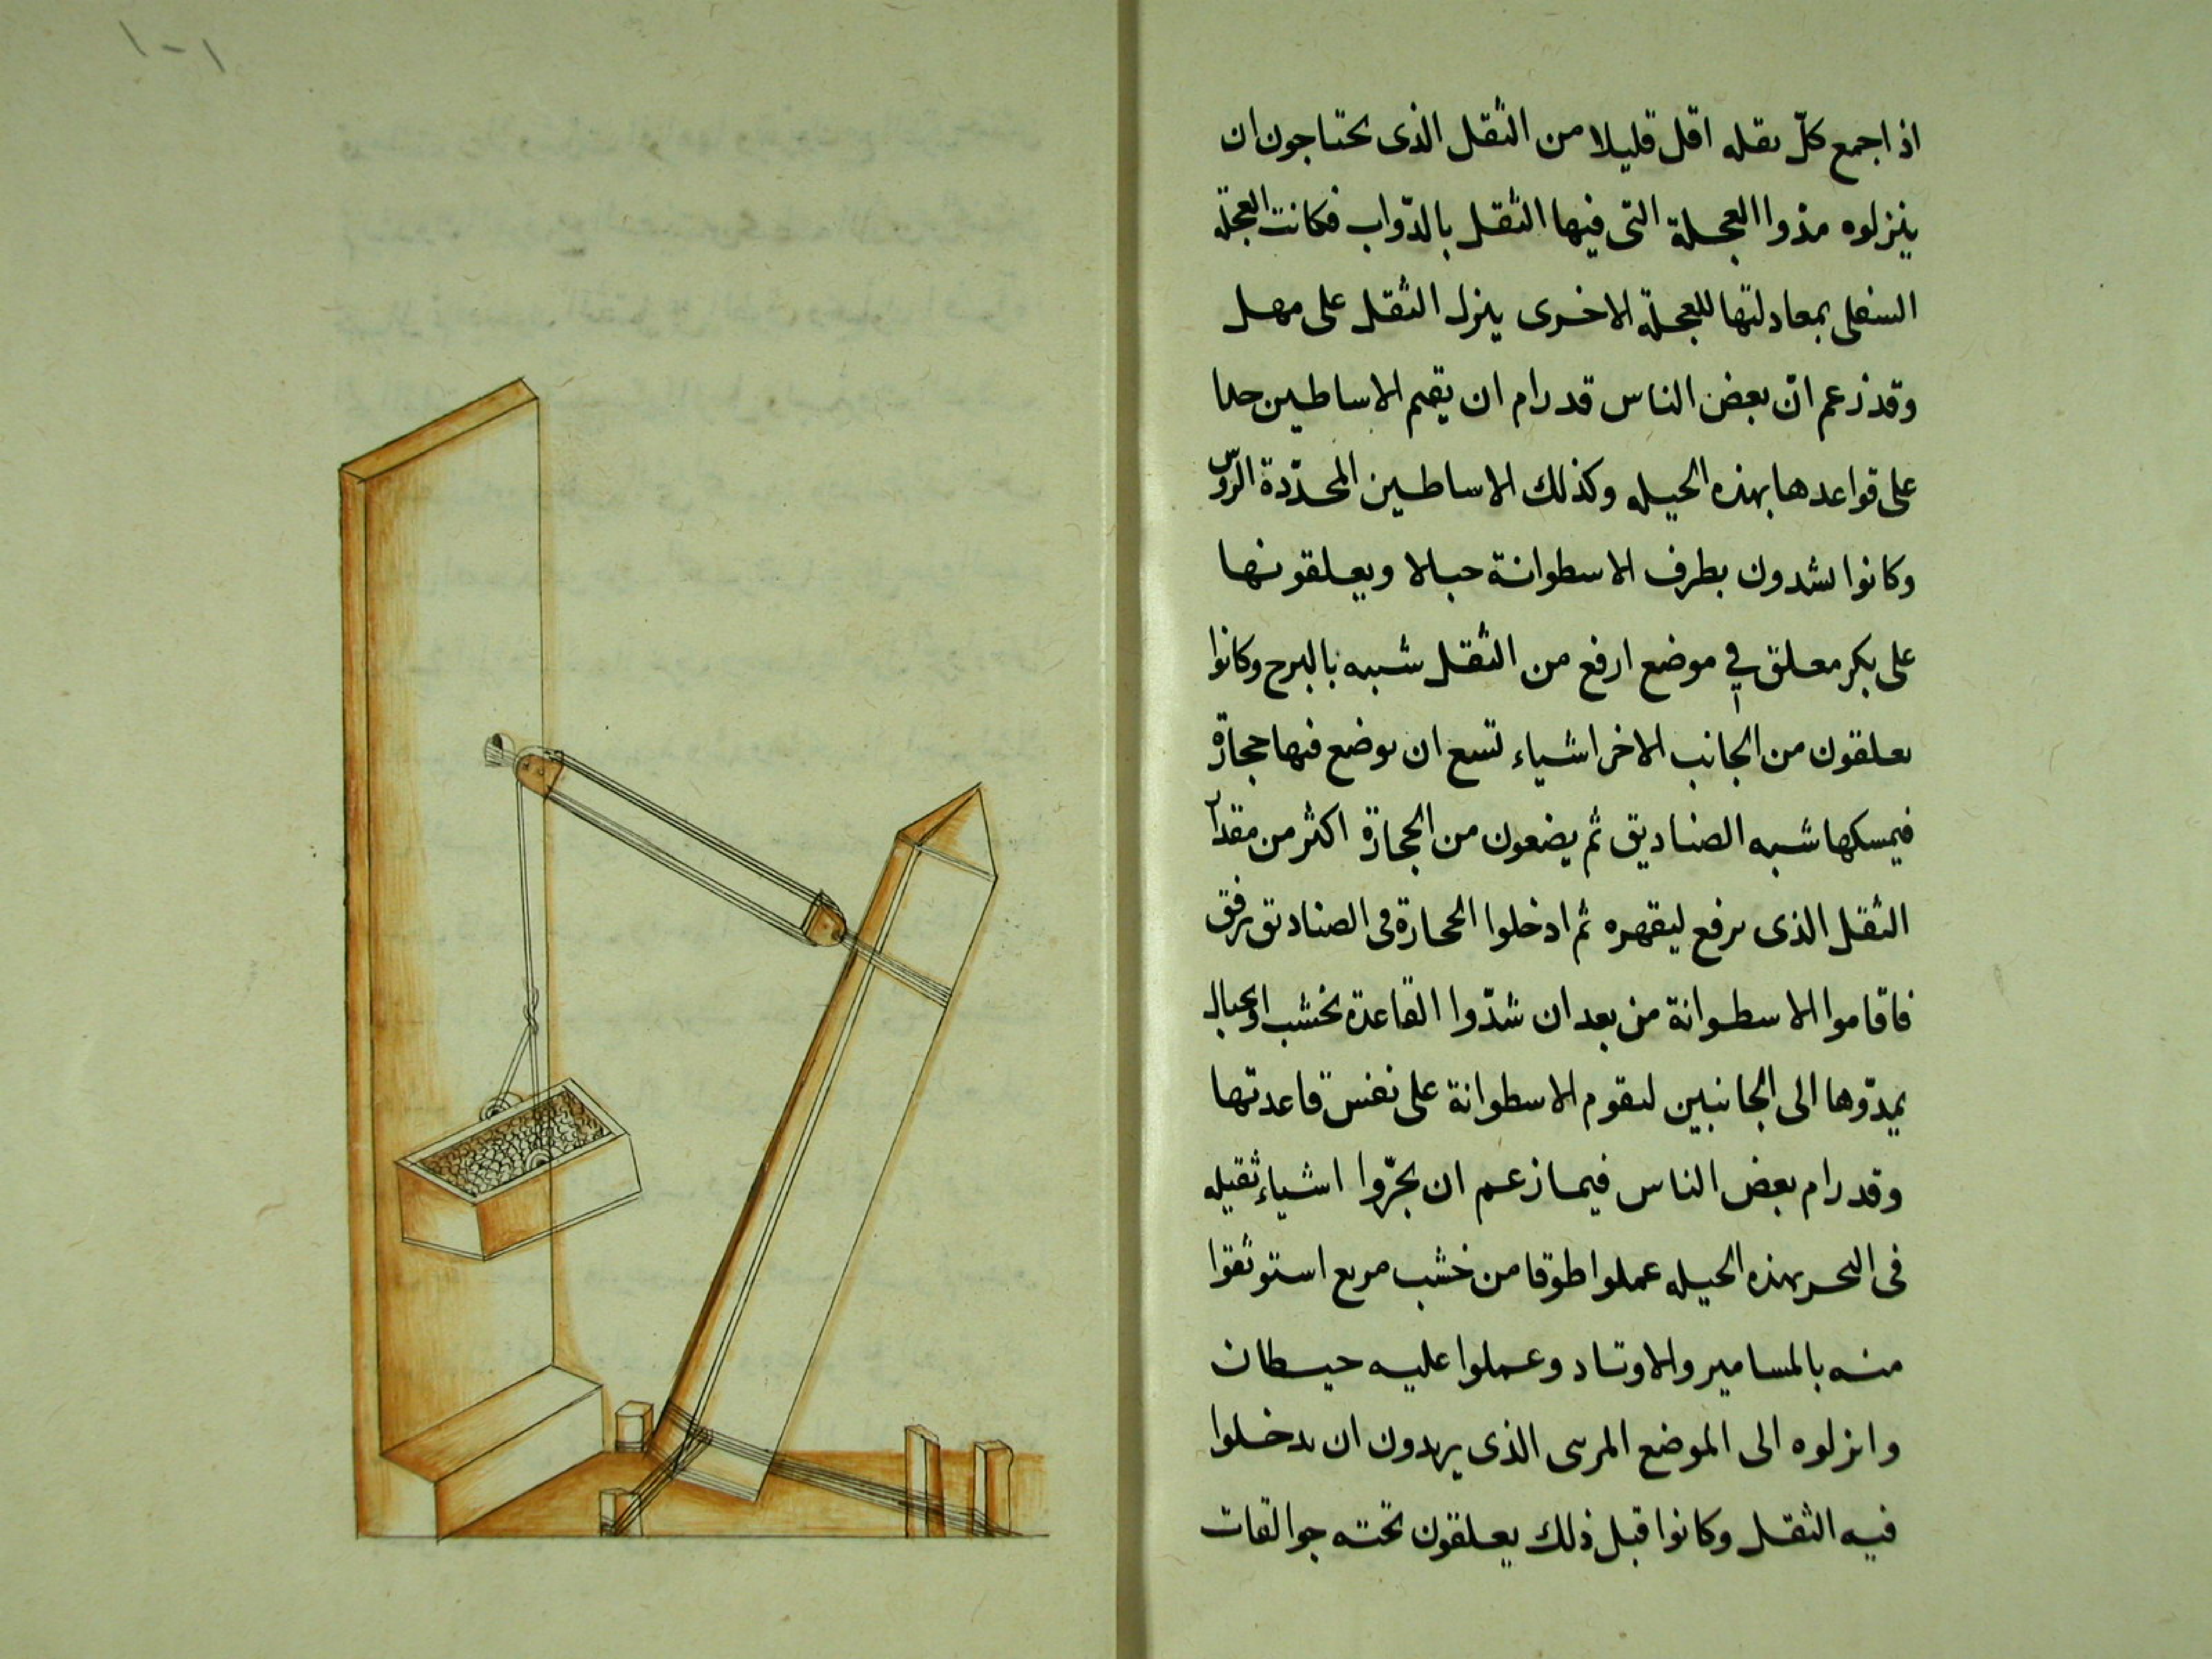 اذا جمع كلّ ثقله اقل قليلا من الثقل الذى يحتاجون ان
ينزلوه مذوا العجلة التى فيها الثقل بالدّواب فكانت العجلة
السفلى بمعادلتها للعجلة الاخرى ينزل الثقل على مهل
وقد زعم انّ بعض الناس قد رام ان يقيم الاساطين
على قواعدها بهذه الحيله وكذلك الاساطين المحدّدة الروّس
وكانوا يشدون بطرف الاسطوانة حبالا ويعلقونها
على بكر معلق في موضع ارفع من الثقل شبيه بالبرج وكانوا
يعلقون من الجانب الاخر اشياء تسع ان يوضع فيها حجارة
فيمسكها شبه الصناديق ثم يضعون من الحجارة اكثر من مقدار
الثقل الذى يرفع ليقهره ثم ادخلوا الحجارة فى الصناديق برفق
فاقاموا الاسطوانة من بعد ان شدّوا القاعدة بخشب او بحبال
يمدّوها الى الجانبين ليقوم الاسطوانة على نفس قاعدتها
وقد رام بعض الناس فيما زعم ان يجرّوا اشياء ثقيله
فى البحر بهذه الحيله عملوا طوقا من خشب مربع استوثقوا
منه بالمسامير والاوتاد وعملوا عليه حيطان
وانزلوه الى الموضع المرسى الذى يريدون ان يدخلوا
فيه الثقل وكانوا قبل ذلك يعلقون تحته جوالقات